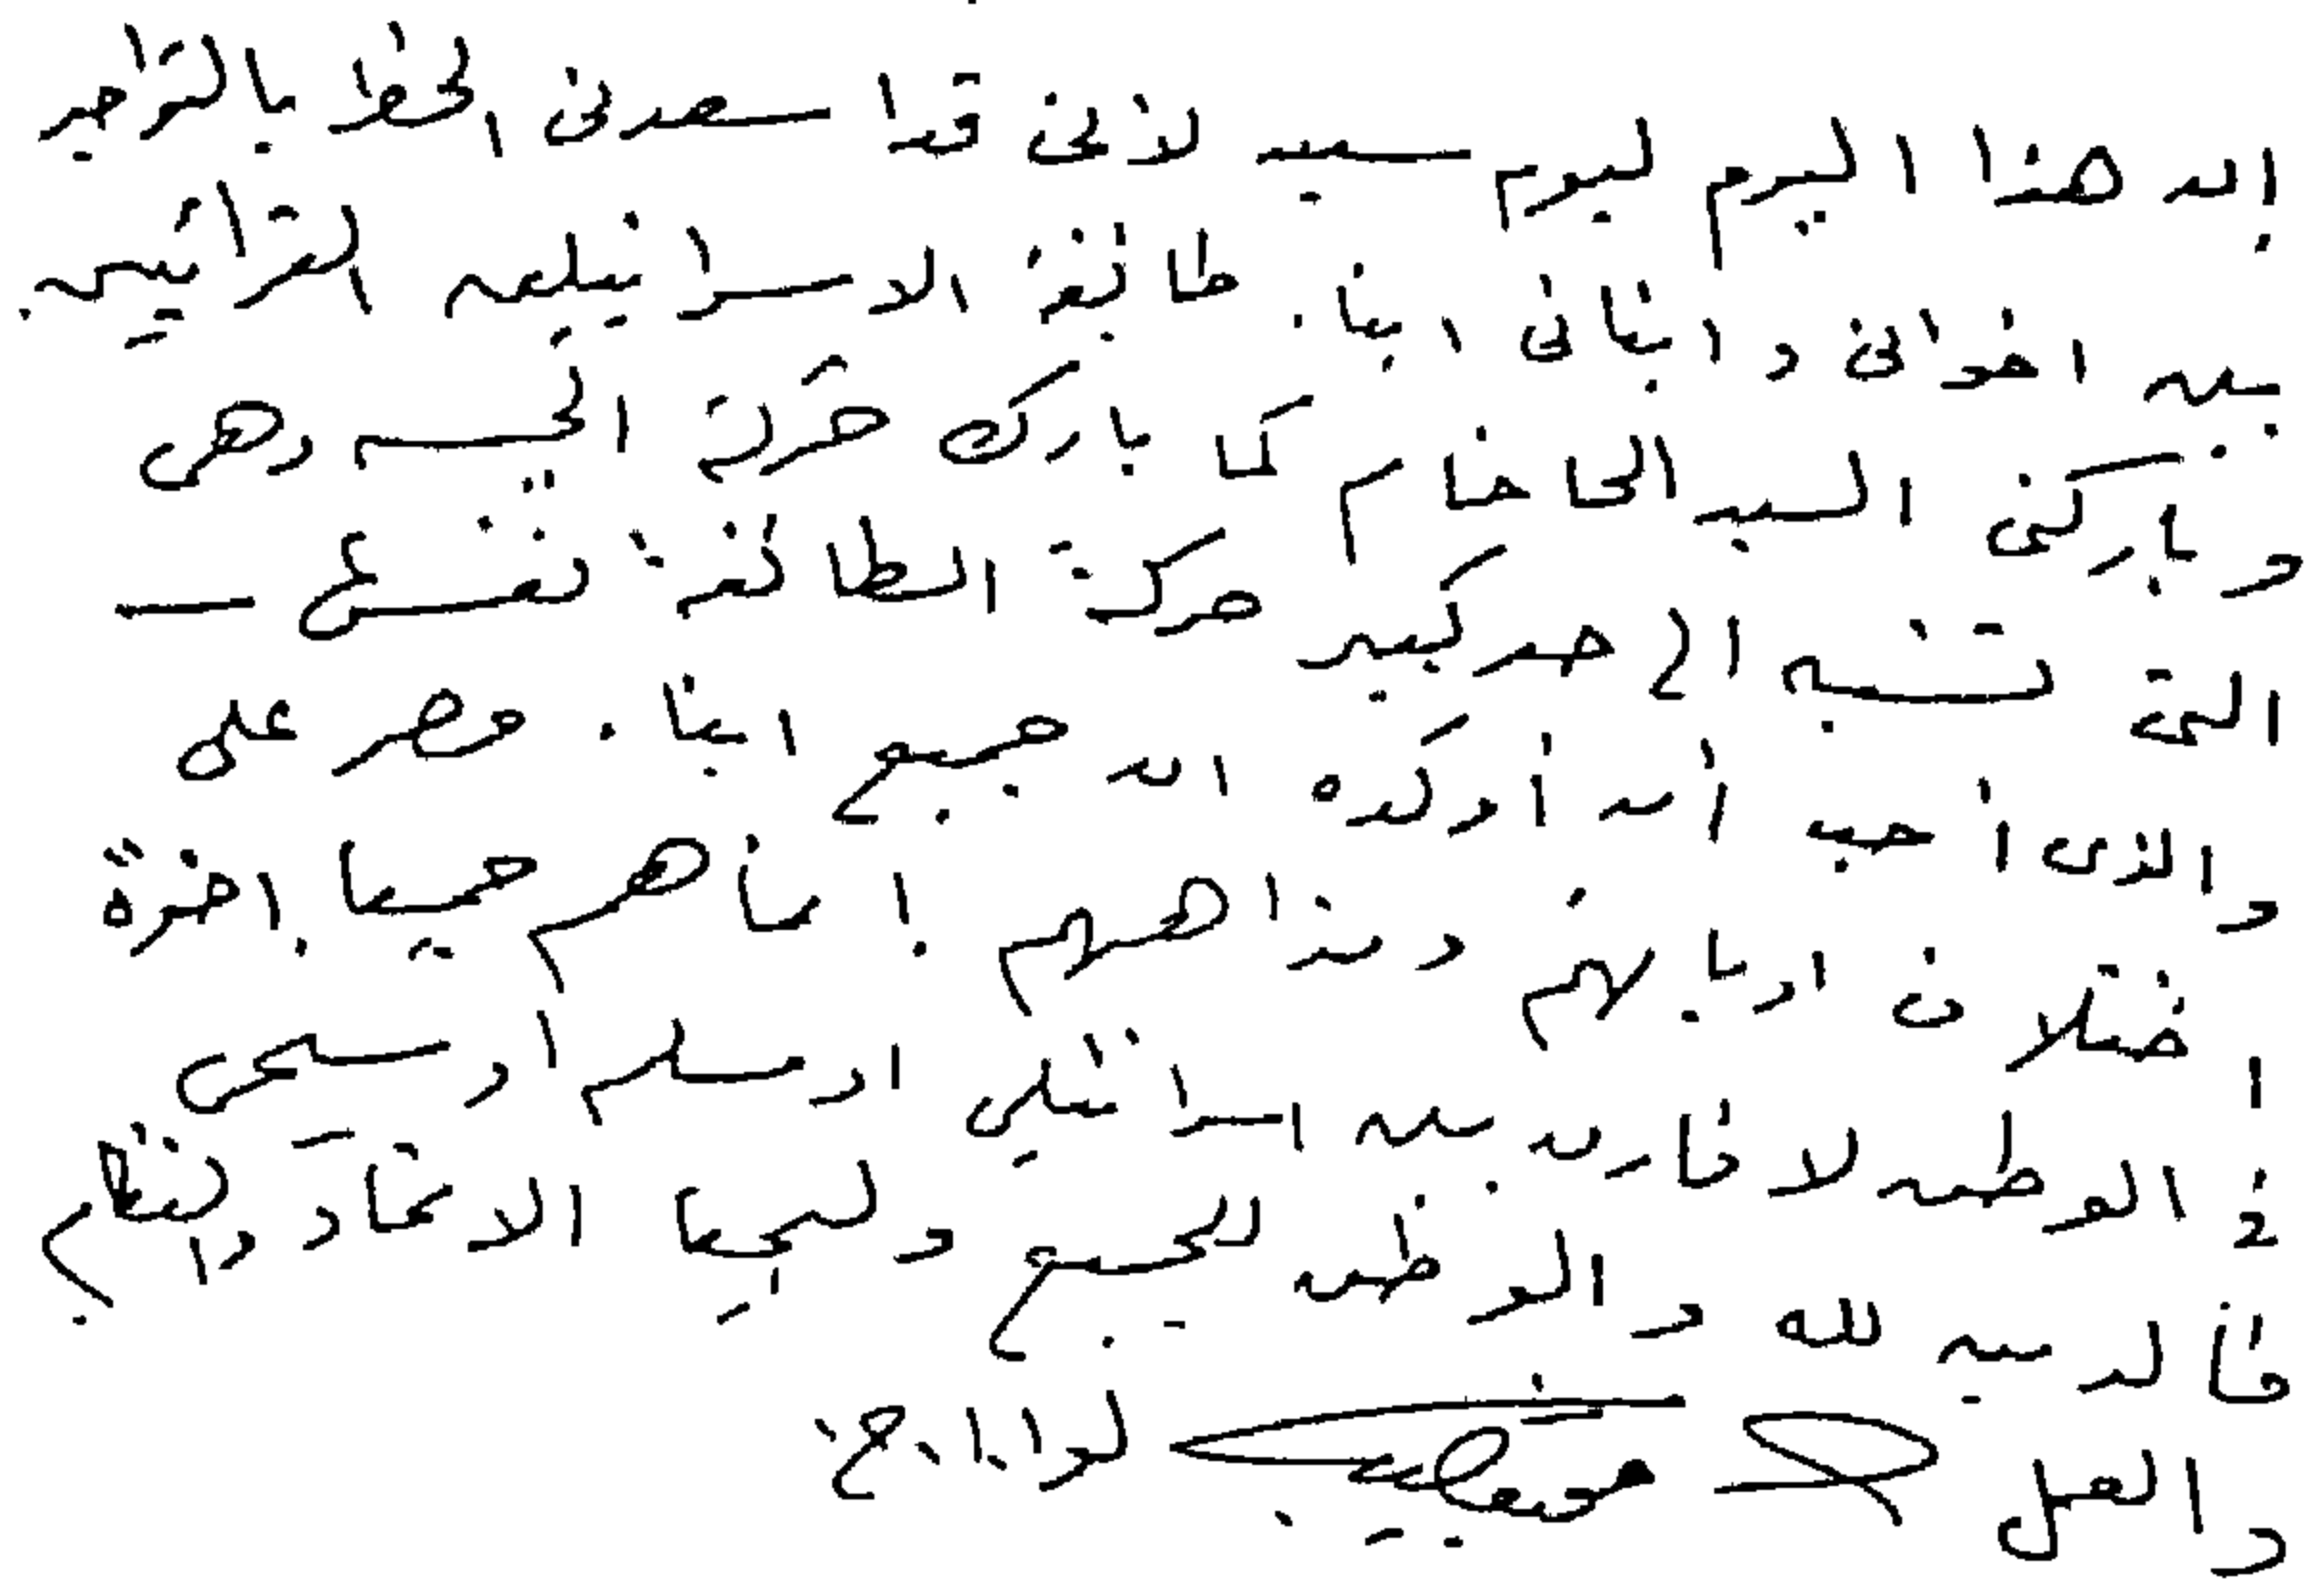 إن هذا اليوم ليوم سعيد لأننى قد أسعدنى الحظ بالتواجد
بين اخوانى و ابنائى ابناء طائفة الاسرائيليين القرائين
وباركنى السيد الحاخام كما بارك حركة الجيش وهى
التى تشبه الى حد كبير حركة الطائفة
والذى أحب أن أؤكده ان جميع ابناء مصر على
اختلاف اديانهم ومذاهبهم إنما هم جميعا إخوة
فى الوطن لا فارق بين اسرائيلى او مسلم او مسيحى
فالدين لله والوطن للجميع وليحيا الاتحاد والنظام
والعمل محمد نجيب لواء ا.ح